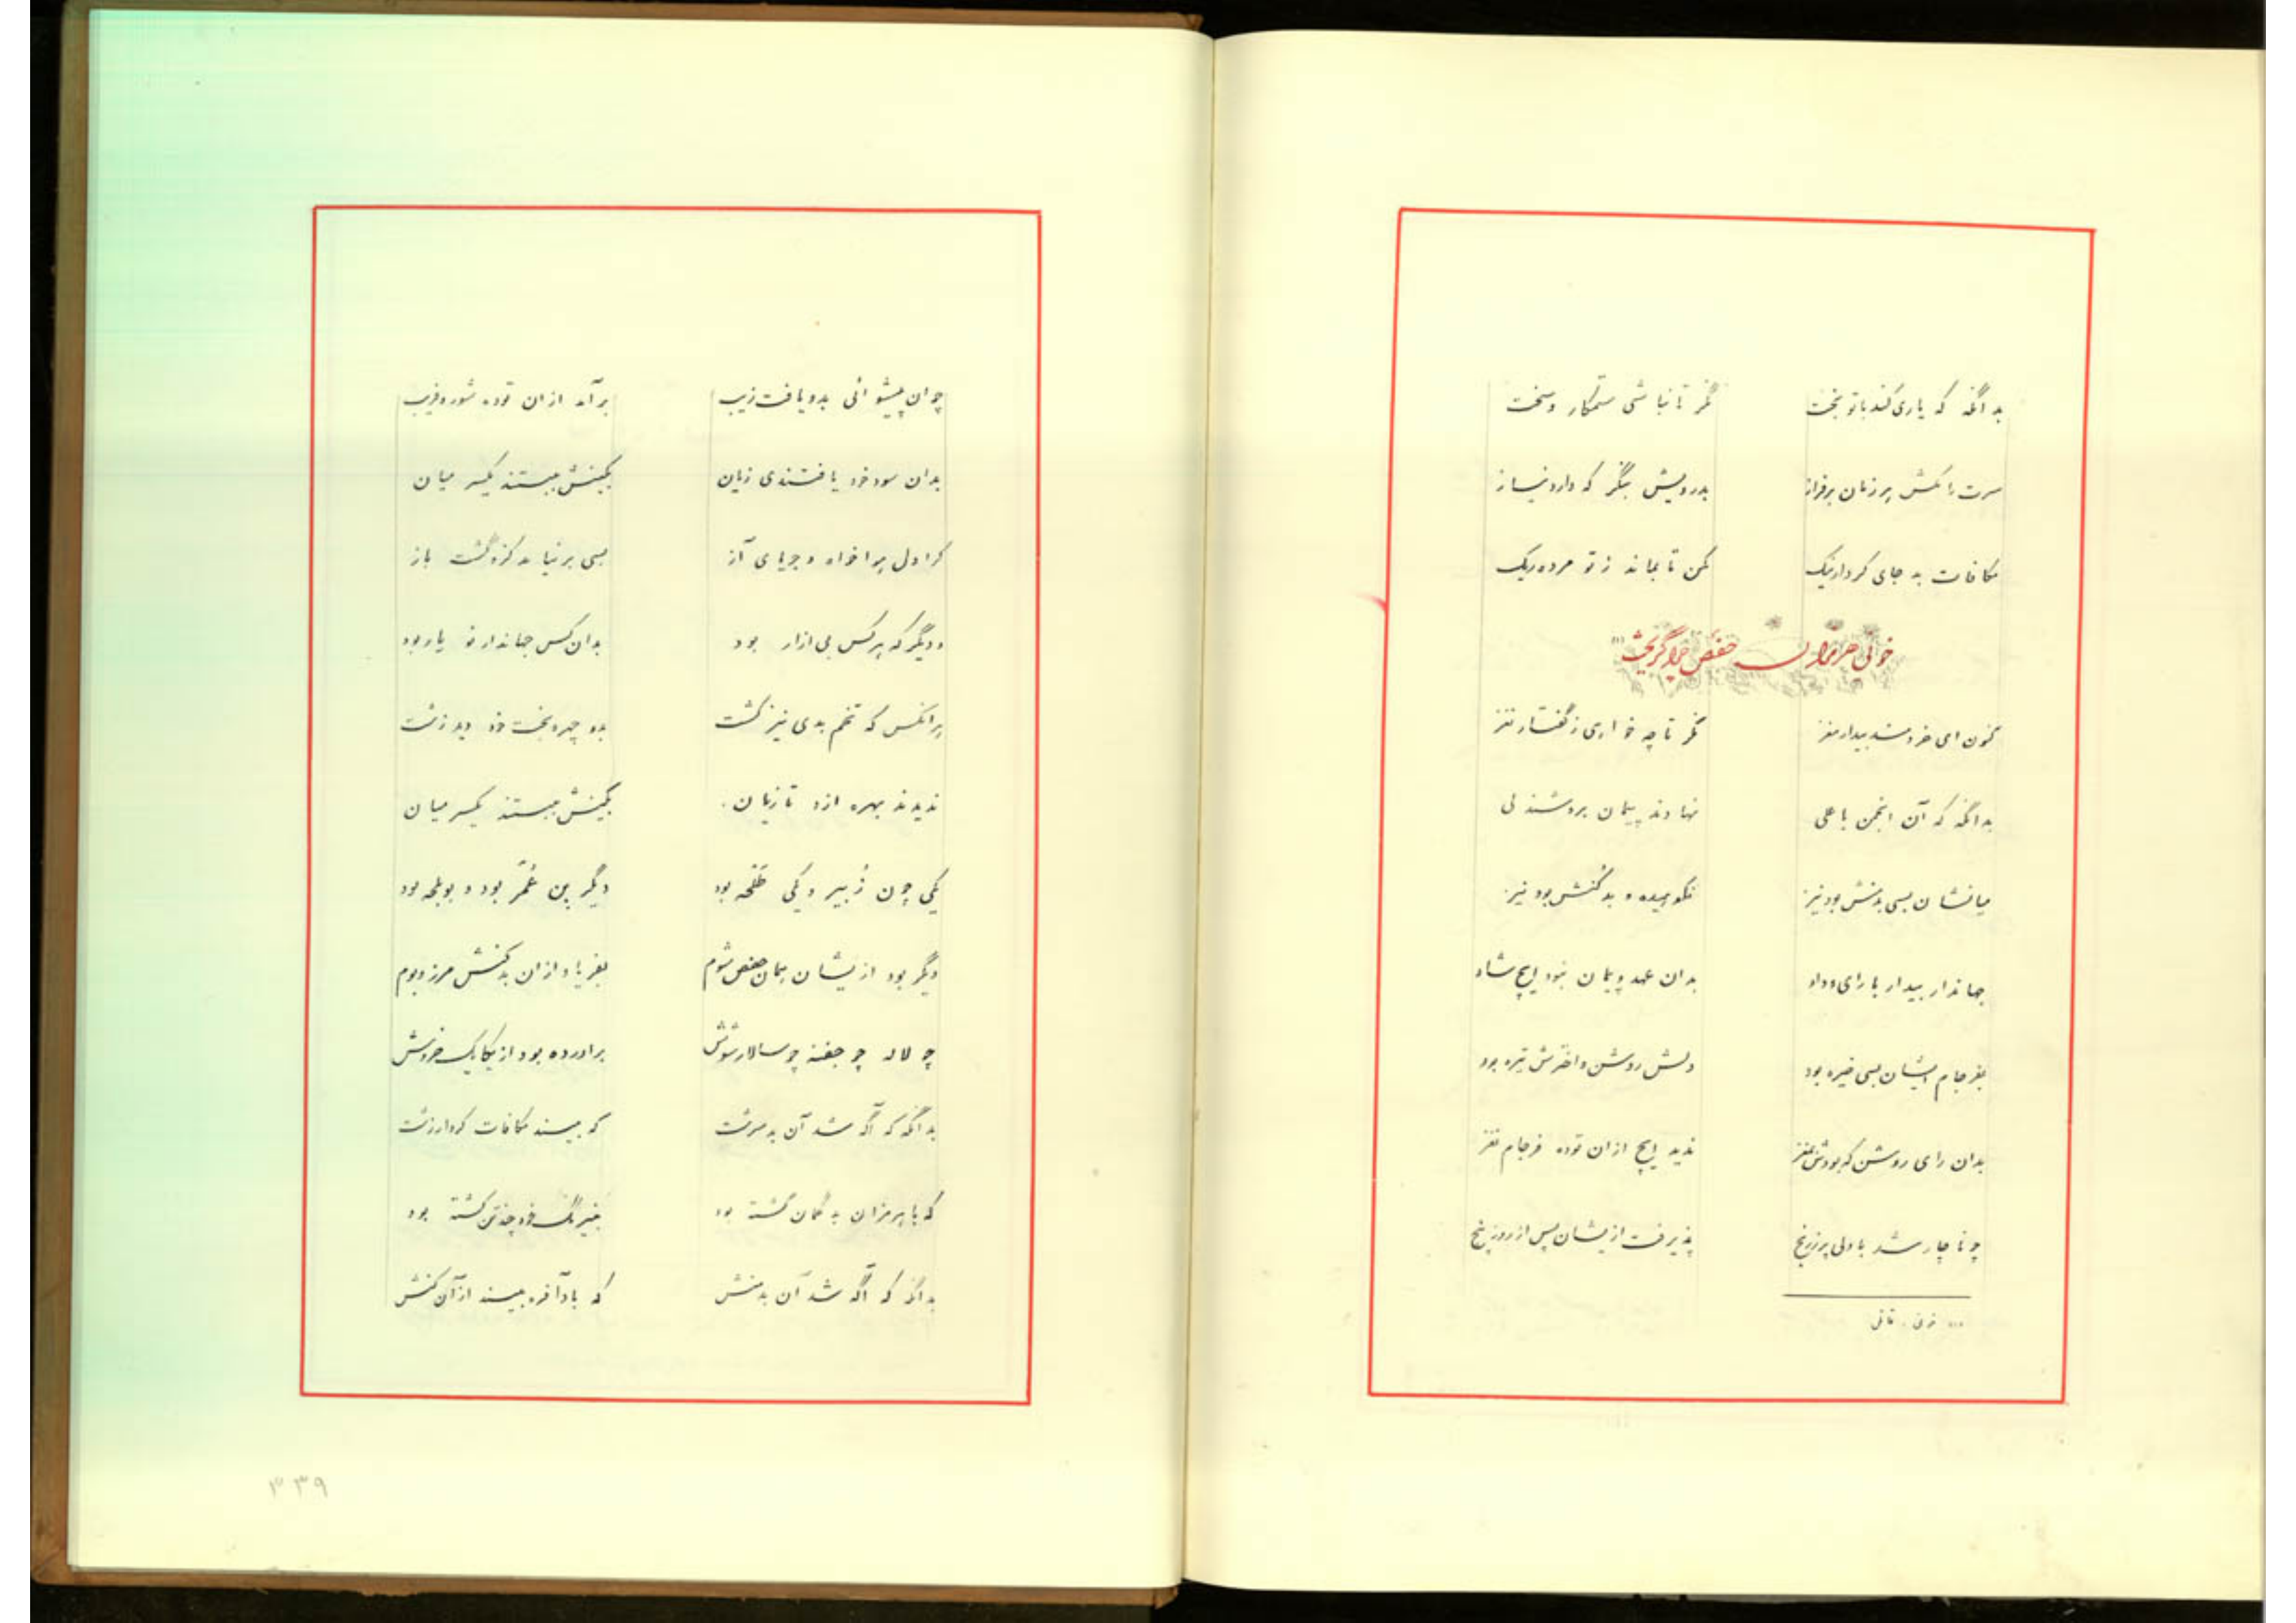 بدانگه که یاری کند با تو بخت نگر تا نباشی ستمکار و سخت
سرت را مکش بر زمان بر فراز بدرویش بنگر که دارد نیاز
مکافات به جای کردار نیک مکن تا بماند ز تو مرده ریک
خونی هرمزان حفص چرا گریخت
کنون ای خردمند بیدار مغز نگر تا چه خواری ز گفتار نغز
بدانگه که آن انجمن با علی نهادند پیمان بروشندلی
میانشان بسی بدمنش بود نیز نکوهیده و بدکنش بود نیز
جهاندار بیدار با رای و داد بدان عهد و پیمان نبود ایچ شاد
بفرجام ایشان بسی خیره بود دلش روشن و اخترش تیره بود
بدان رای روشن که بودش بمغز ندید ایچ ازان توده فرجام نغز
چو ناچار شد با دلی پر ز رنج پذیرفت ازیشان پس از روز پنج
خونی. قاتل
چو ان پیشوائی بدو یافت زیب برآمد ازان توده شور و فریب
بدان سود خود یافتندی زیان بکینش ببستند یکسر میان
کرا دل پر اخواه و جویای آز بسی بر نیامد کزو گشت باز
و دیگر که بر کس بی ازار بود بدان کس جهاندار نو یار بود
هرانکس که تخم بدی نیز کشت بدو چهره بخت خود دید زشت
ندیدند بهره ازو تا زیان بکینش ببستند یکسر میان
یکی چون زُبیر و یکی طَلحه بود دگر بن عُمَر بود و بوبلحه بود
دیگر بود ازیشان همان حفص شوم بفریاد ازان بدکنش مرز و بوم
چو لاله چو جفنه چو سالار شوش براورده بود از یکایک خروش
بدانگه که آگه شد آن بدسرشت که بیند مکافات کردار زشت
که با هرمزان بدگمان گشته بود بنیرنگ خود چند تن کشته بود
بدانگه که آگه شد آن بدمنش که بادافره بیند از آن کنش
۳۳۹